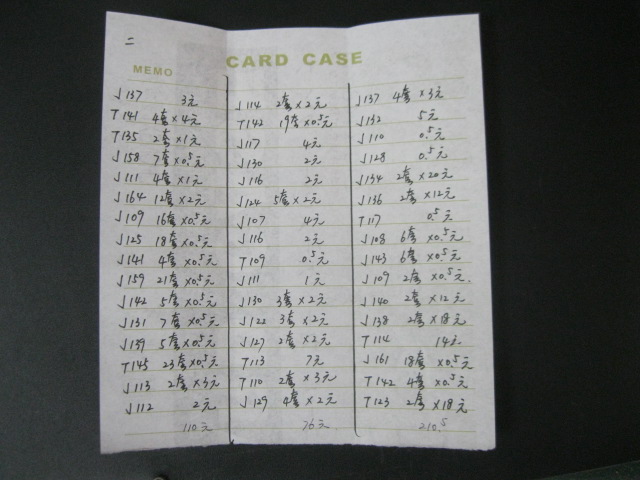 二
CARD CASE
MEMO
J137 3元
T141 4套×4元
T135 2套×1元
J158 7套×0.5元
J111 4套×1元
J164 12套×2元
J109 16套×0.5元
J125 18套×0.5元
J141 4套×0.5元
J159 21套×0.5元
J142 5套×0.5元
J131 7套×0.5元
J139 5套×0.5元
T145 23套×0.5元
J113 2套×3元
J112 2元
110元
J114 2套×2元
T142 19套×0.5元
J117 4元
J130 2元
J116 2元
J124 5套×2元
J107 4元
J116 2元
T109 0.5元
J111 1元
J130 3套×2元
J122 3套×2元
J127 2套×2元
T113 7元
T110 2套×3元
J129 4套×2元
76元
J137 4套×3元
J132 5元
J110 0.5元
J128 0.5元
J134 2套×20元
J136 2套×12元
T117 0.5元
J108 6套×0.5元
J143 6套×0.5元
J109 2套×0.5元
J140 2套×12元
J138 2套×18元
T114 14元
J161 18套×0.5元
T142 4套×0.5元
T123 2套×18元
210.5